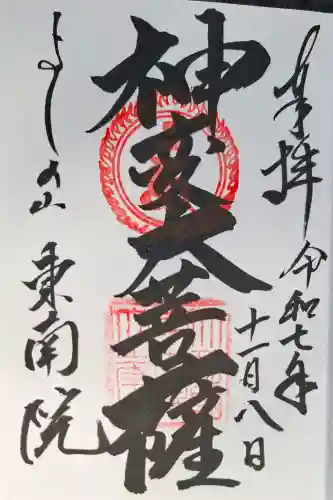 奉拝
令和七年
十一月八日
神変大菩薩
よしの山
東南院